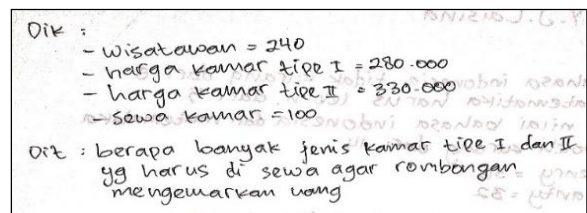 Dik :
- wisatawan = 240
- harga kamar tipe I = 280.000
- harga kamar tipe II = 330.000
- sewa kamar = 100
Dit : berapa banyak jenis kamar tipe I dan II
yg harus di sewa agar rombongan
mengeluarkan uang